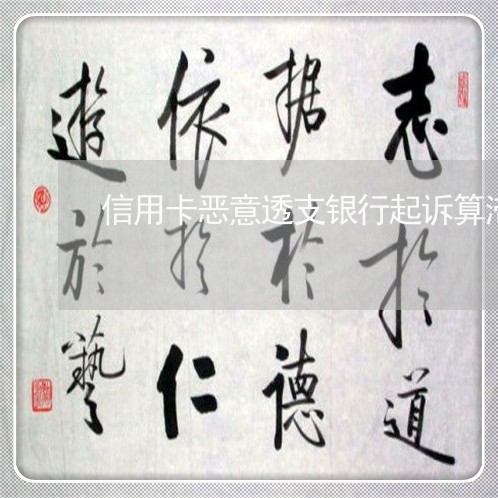 志扵道
据於德
依扵仁
遊於藝
信用卡恶意透支银行起诉算